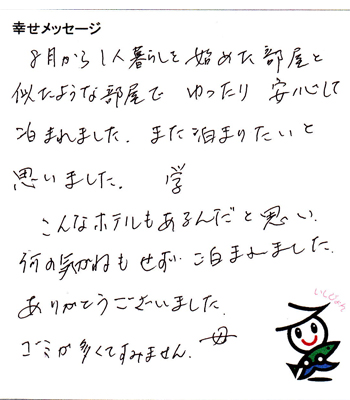 幸せメッセージ
8月から1人暮らしを始めた部屋と
似たような部屋で ゆったり 安心して
泊まれました。また泊まりたいと
思いました。 学
こんなホテルもあるんだと思い、
何の気がねもせず、泊まれました。
ありがとうございました。
ゴミが多くてすみません。 母